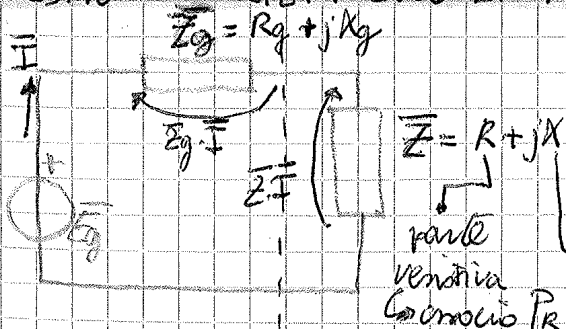 Z̅g = Rg + jXg
I̅
Z̅g·I̅
Z̅·I̅
Z̅ = R + jX
+
E̅g
parte
resistiva
↳ PR